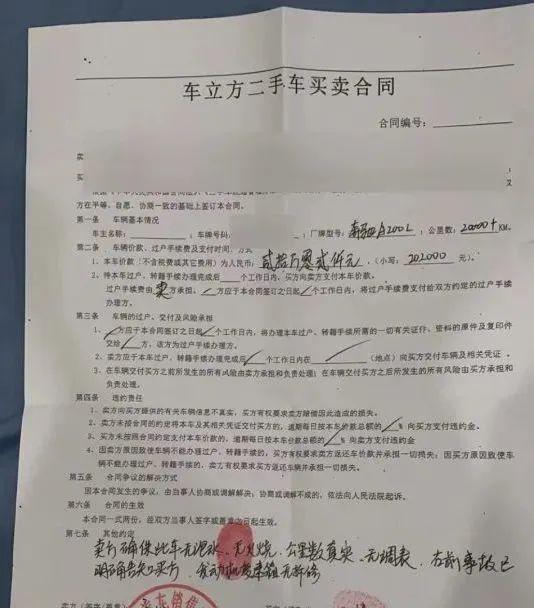 车立方二手车买卖合同
合同编号:
卖
买
方在平等、自愿、协商一致的基础上签订本合同。
第一条 车辆基本情况
车主名称: ; 车牌号码: ; 厂牌型号: 奔驰A200L ; 公里数: 20000+ KM。
第二条 车辆价款、过户手续费及支付时间、方式
1、本车价款(不含税费或其它费用)为人民币: 贰拾万零贰仟元 (小写: 202000 元)。
2、待本车过户、转籍手续办理完成后 个工作日内,买方向卖方支付本车价款。
过户手续费由 卖 方承担。 方应于本合同签订之日起 个工作日内,将过户手续费支付给双方约定的过户手续
办理方。
第三条 车辆的过户、交付及风险承担
1、 方应于本合同签订之日起 个工作日内,将办理本车过户、转籍手续所需的一切有关证件、资料的原件及复印件
交给 方,该方为过户手续办理方。
2、卖方应于本车过户、转籍手续办理完成后 个工作日内在 (地点)向买方交付车辆及相关凭证。
3、在车辆交付买方之前所发生的所有风险由卖方承担和负责处理;在车辆交付买方之后所发生的所有风险由买方承担和
负责处理。
第四条 违约责任
1、卖方向买方提供的有关车辆信息不真实,买方有权要求卖方赔偿因此造成的损失。
2、卖方未按合同的约定将本车及其相关凭证交付买方的,逾期每日按本车价款总额的 % 向买方支付违约金。
3、买方未按照合同约定支付本车价款的,逾期每日按本车价款总额的 % 向卖方支付违约金
4、因卖方原因致使车辆不能办理过户、转籍手续的,买方有权要求卖方返还车价款并承担一切损失;因买方原因致使车
辆不能办理过户、转籍手续的,卖方有权要求买方返还车辆并承担一切损失。
第五条 合同争议的解决方式
因本合同发生的争议,由当事人协商或调解解决;协商或调解不成的,依法向人民法院起诉。
第六条 合同的生效
本合同一式两份,经双方当事人签字或盖章之日起生效。
第七条 其他约定
卖方确保此车无泡水、无火烧、公里数真实、无调表、
明确告知买方 发动机变速箱无拆修
卖方(签字/盖章)